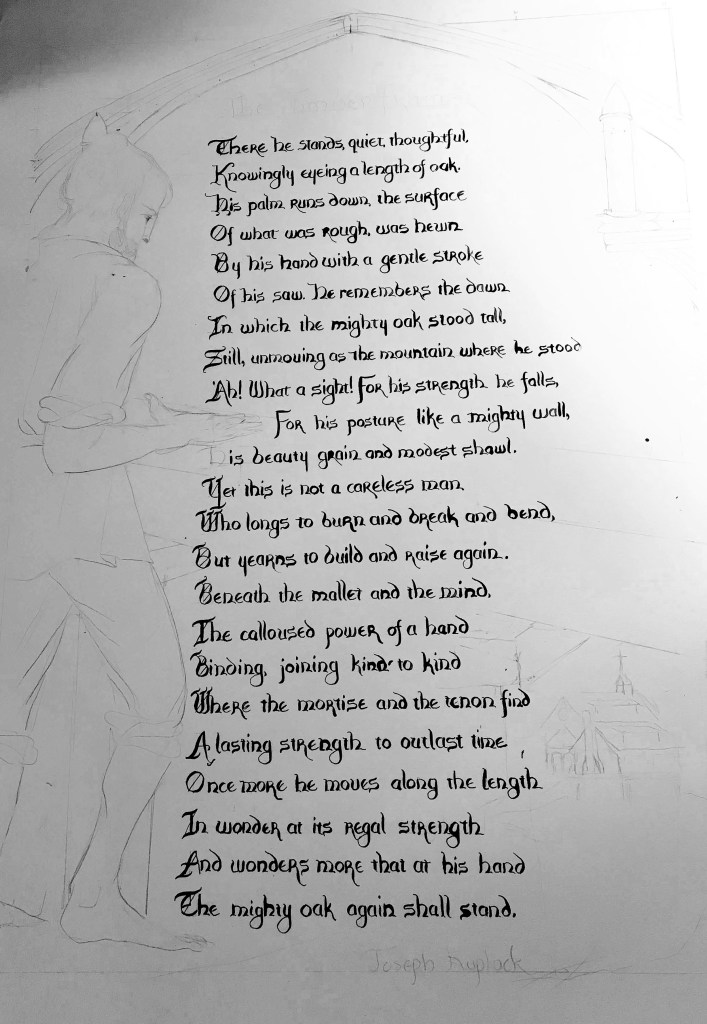 There he stands, quiet, thoughtful,
Knowingly eyeing a length of oak.
His palm runs down, the surface
Of what was rough, was hewn
By his hand with a gentle stroke
Of his saw. He remembers the dawn
In which the mighty oak stood tall,
Still, unmoving as the mountain where he stood
'Ah! What a sight! For his strength he falls,
For his posture like a mighty wall,
His beauty grain and modest shawl.
Yet this is not a careless man
Who longs to burn and break and bend,
But yearns to build and raise again.
Beneath the mallet and the mind,
The calloused power of a hand
Binding, joining kind to kind
Where the mortise and the tenon find
A lasting strength to outlast time,
Once more he moves along the length
In wonder at its regal strength
And wonders more that at his hand
The mighty oak again shall stand.
Joseph